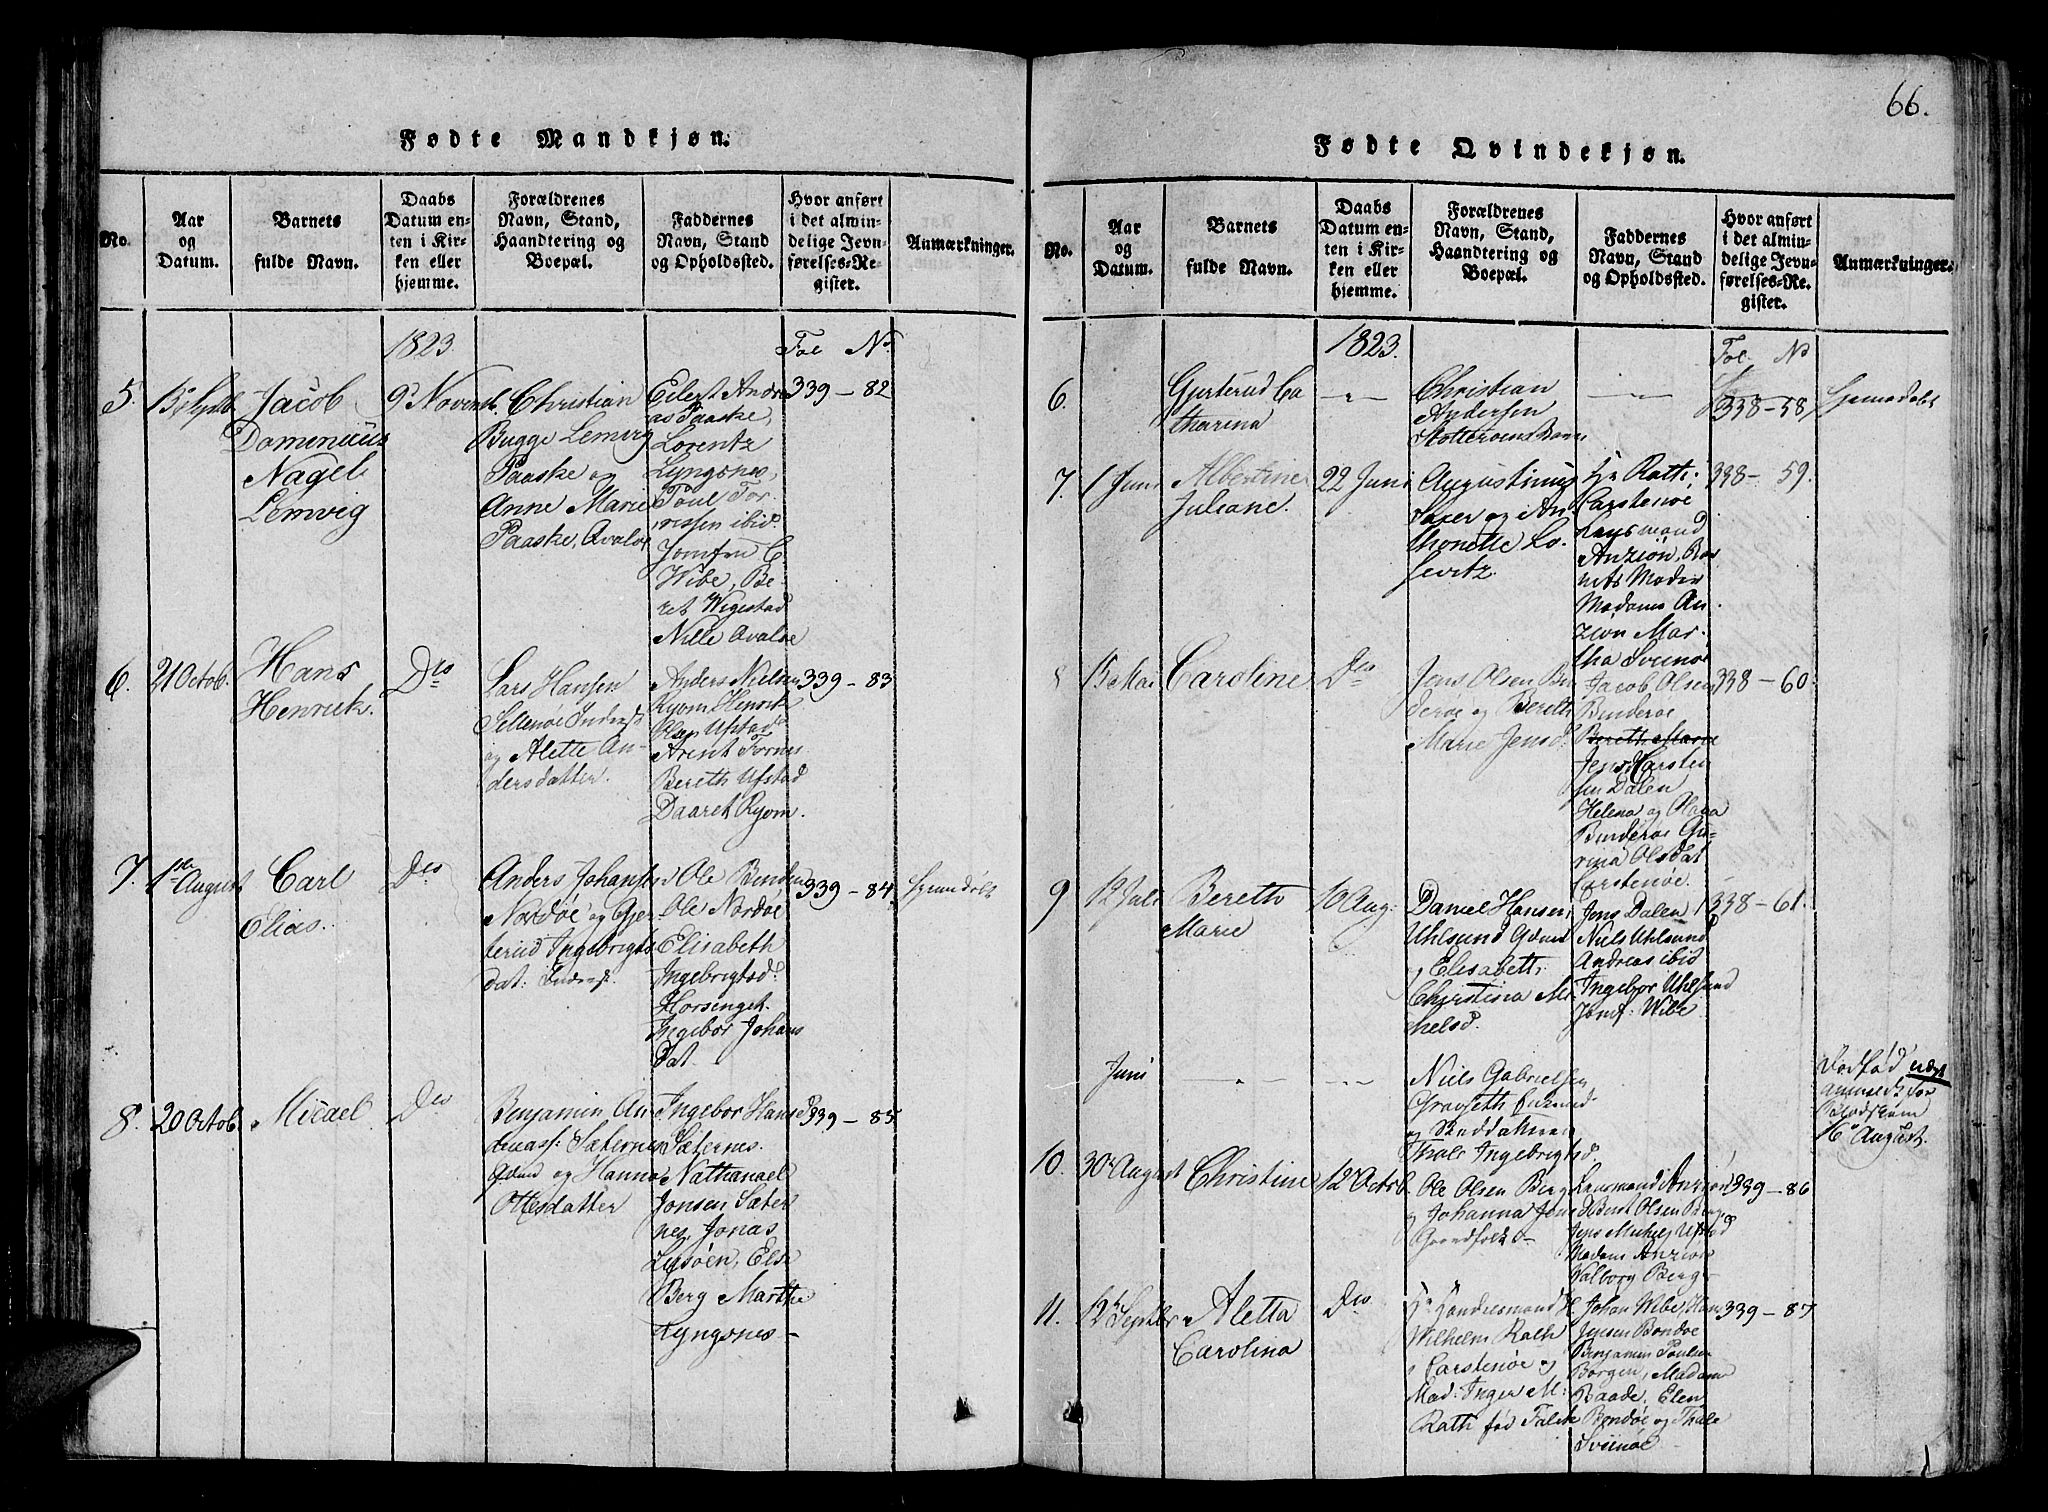 66.
Fødte Mandkjøn.
No.
Aar
og
Datum.
Barnets
fulde Navn.
Daabs
Datum en-
ten i Kir-
ken eller
hjemme.
Forældrenes
Navn, Stand,
Haandtering og
Boepæl.
Faddernes
Navn, Stand
og Opholdssted.
Hvor anført
i det almin-
delige Jevn-
førelses-Re-
gister.
Anmærkninger.
1823.
Fol No
5.
Jacob
Domenicus
Nagel
Lemvig
9d Novemb.
Christian
Bugge Lemvig
Paaske og
Anne Marie
Paaske, Avalöe
Eilert Andre
as Paaske,
Lorentz
Lyngsnes,
Poul Tor
ibid
Jomfru C.
Wibe, Be-
ret Wigestad
Nille Avaløe
339 - 82
6.
21 Octob.
Hans
Henrick.
Do
Lars Hansen
og Alette An-
dersdatter.
Anders Nielsen
Ryom Henrik
Olsen Ufstad
Arent
Bereth Ufstad
Daaret Ryom.
339 - 83
7.
1ste August
Carl
Elias.
Do
Anders Johans
Nordøe og Gjer
terud Ingebrigts
dat:
Ole
Ole Nordøe
Elisabeth
Ingebrigtsd.
Horsenget.
Ingebor Johans
dat.
339 - 84
hjemedöbt
8.
20 Octob.
Micael
Do
Benjamin An-
dreass: Sæternes
og Hanna
Ottesdatter
Ingebor Hansd.
Sæternes.
Nathanael
Jonsen Sæter
nes, Jonas
Lysöen, Else
Berg Marthe
Lyngsnes -
339 - 85
Fødte Qvindekjøn.
No.
Aar
og
Datum.
Barnets
fulde Navn.
Daabs
Datum en-
ten i Kir-
ken eller
hjemme.
Forældrenes
Navn, Stand,
Haandtering og
Boepæl.
Faddernes
Navn, Stand
og Opholdssted.
Hvor anført
i det almin-
delige Jevn-
førelses-Re-
gister.
Anmærkninger.
1823.
Fol. No
6.
Gjerterud Ca
tharina
Christian
Andersen
338 - 58
hjemedøbt
7.
1 Juni
Albertine
Juliane.
22 Juni
Augustinus
og An
thonette Lo-
sevitz.
Hr Rath
Carstenøe
Lensmand
Anzion, Bar
nets Moder
Madame An
zion Mar-
tha Svenöe
338 - 59.
8
15 Mai
Caroline
Do
Jens Olsen Bin
deroe og Bereth
Marie Jensd.
Jacob Olsen
Binderøe
Bereth Marie
Jens Karsten
sen Dalen
Helena og Olava
Binderøe Gu-
rina Olsdat
Carstenøe.
338 - 60.
9
12 Juli
Bereth
Marie
10 Aug:
Daniel Hansen
Uhlsund
Elisabeth
Christina Mi-
chelsd.
Jens Dalen
Niels Uhlsund
Andreas ibid
Ingebor Uhlsund
Jomf: Wibe
338 - 61.
Juni
Niels Gabrielsen
og
Thale Ingebrigtsd.
Dødfød
16 August.
10.
30 August
Christine
12 Octob.
Ole Olsen Berg
og Johanna Jens
Gaardfolk
Lensmand Anzion
Olsen Berg
Jens Michels Ufstad
Madam Anzion
Valborg Berg
339 - 86
11.
12 Septbr
Aletta
Carolina
Do
Hr Handelsmand
Wilhelm Rath
Carstenøe og
Mad: Inger M:
Rath fød Falck
H. Johan Wibe, Hans
Jensen Bondøe
Benjamin Poulsen
Borgen, Madame
Raade, Elen
Bondøe og Thale
Svenøe
339 - 87